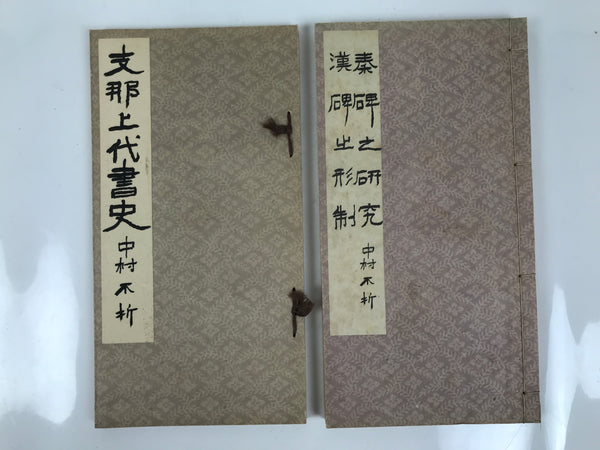 支那上代書史
中村不折
秦碑之研究
漢碑之形制
中村不折